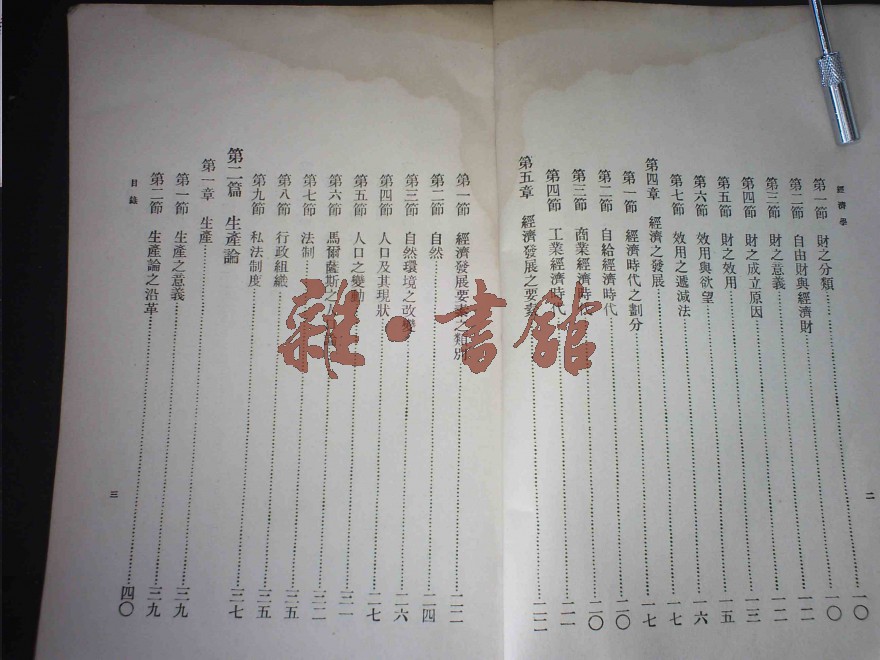 經濟學
第一節 財之分類 一〇
第二節 自由財與經濟財 一〇
第三節 財之意義 一二
第四節 財之成立原因 一二
第五節 財之效用 一三
第六節 效用與欲望 一五
第七節 效用之遞減法 一六
第四章 經濟之發展 一七
第一節 經濟時代之劃分 一七
第二節 自給經濟時代 二〇
第三節 商業經濟時代 二〇
第四節 工業經濟時代 二一
第五章 經濟發展之要素 二二
二
第一節 經濟發展要素之類別 二二
第二節 自然 二四
第三節 自然環境之改變 二六
第四節 人口及其現狀 二七
第五節 人口之變動 三一
第六節 馬爾薩斯之 三二
第七節 法制 三五
第八節 行政組織 三五
第九節 私法制度 三七
第二篇 生產論
第一章 生產 三九
第一節 生產之意義 三九
第二節 生產論之沿革 四〇
目錄
三
雜·書館